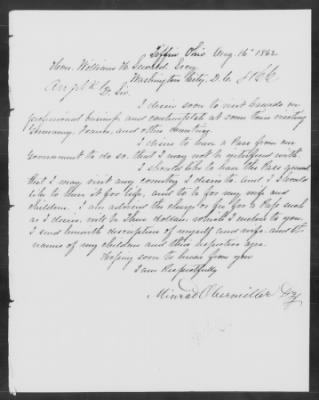 Tiffin Ohio Aug. 16th 1862
Hon. William H. Seward Secy
Washington City, D.C.
Dr Sir.
I desire soon to visit Canada on
professional business and contemplate at some time visiting
Germany, France, and other countries.
I desire to have a Pass from our
Government to do so, that I may not be interfered with.
I should like to have this Pass general
that I may visit any country I desire to. And I should
like to have it for life, and to be for my wife and
children. I am advised the charge or fee for a Pass such
as I desire will be three dollars, which I enclose to you.
I send herewith description of myself and wife and the
names of my children and their respective ages.
Hoping soon to hear from you
I am Respectfully
Obermiller